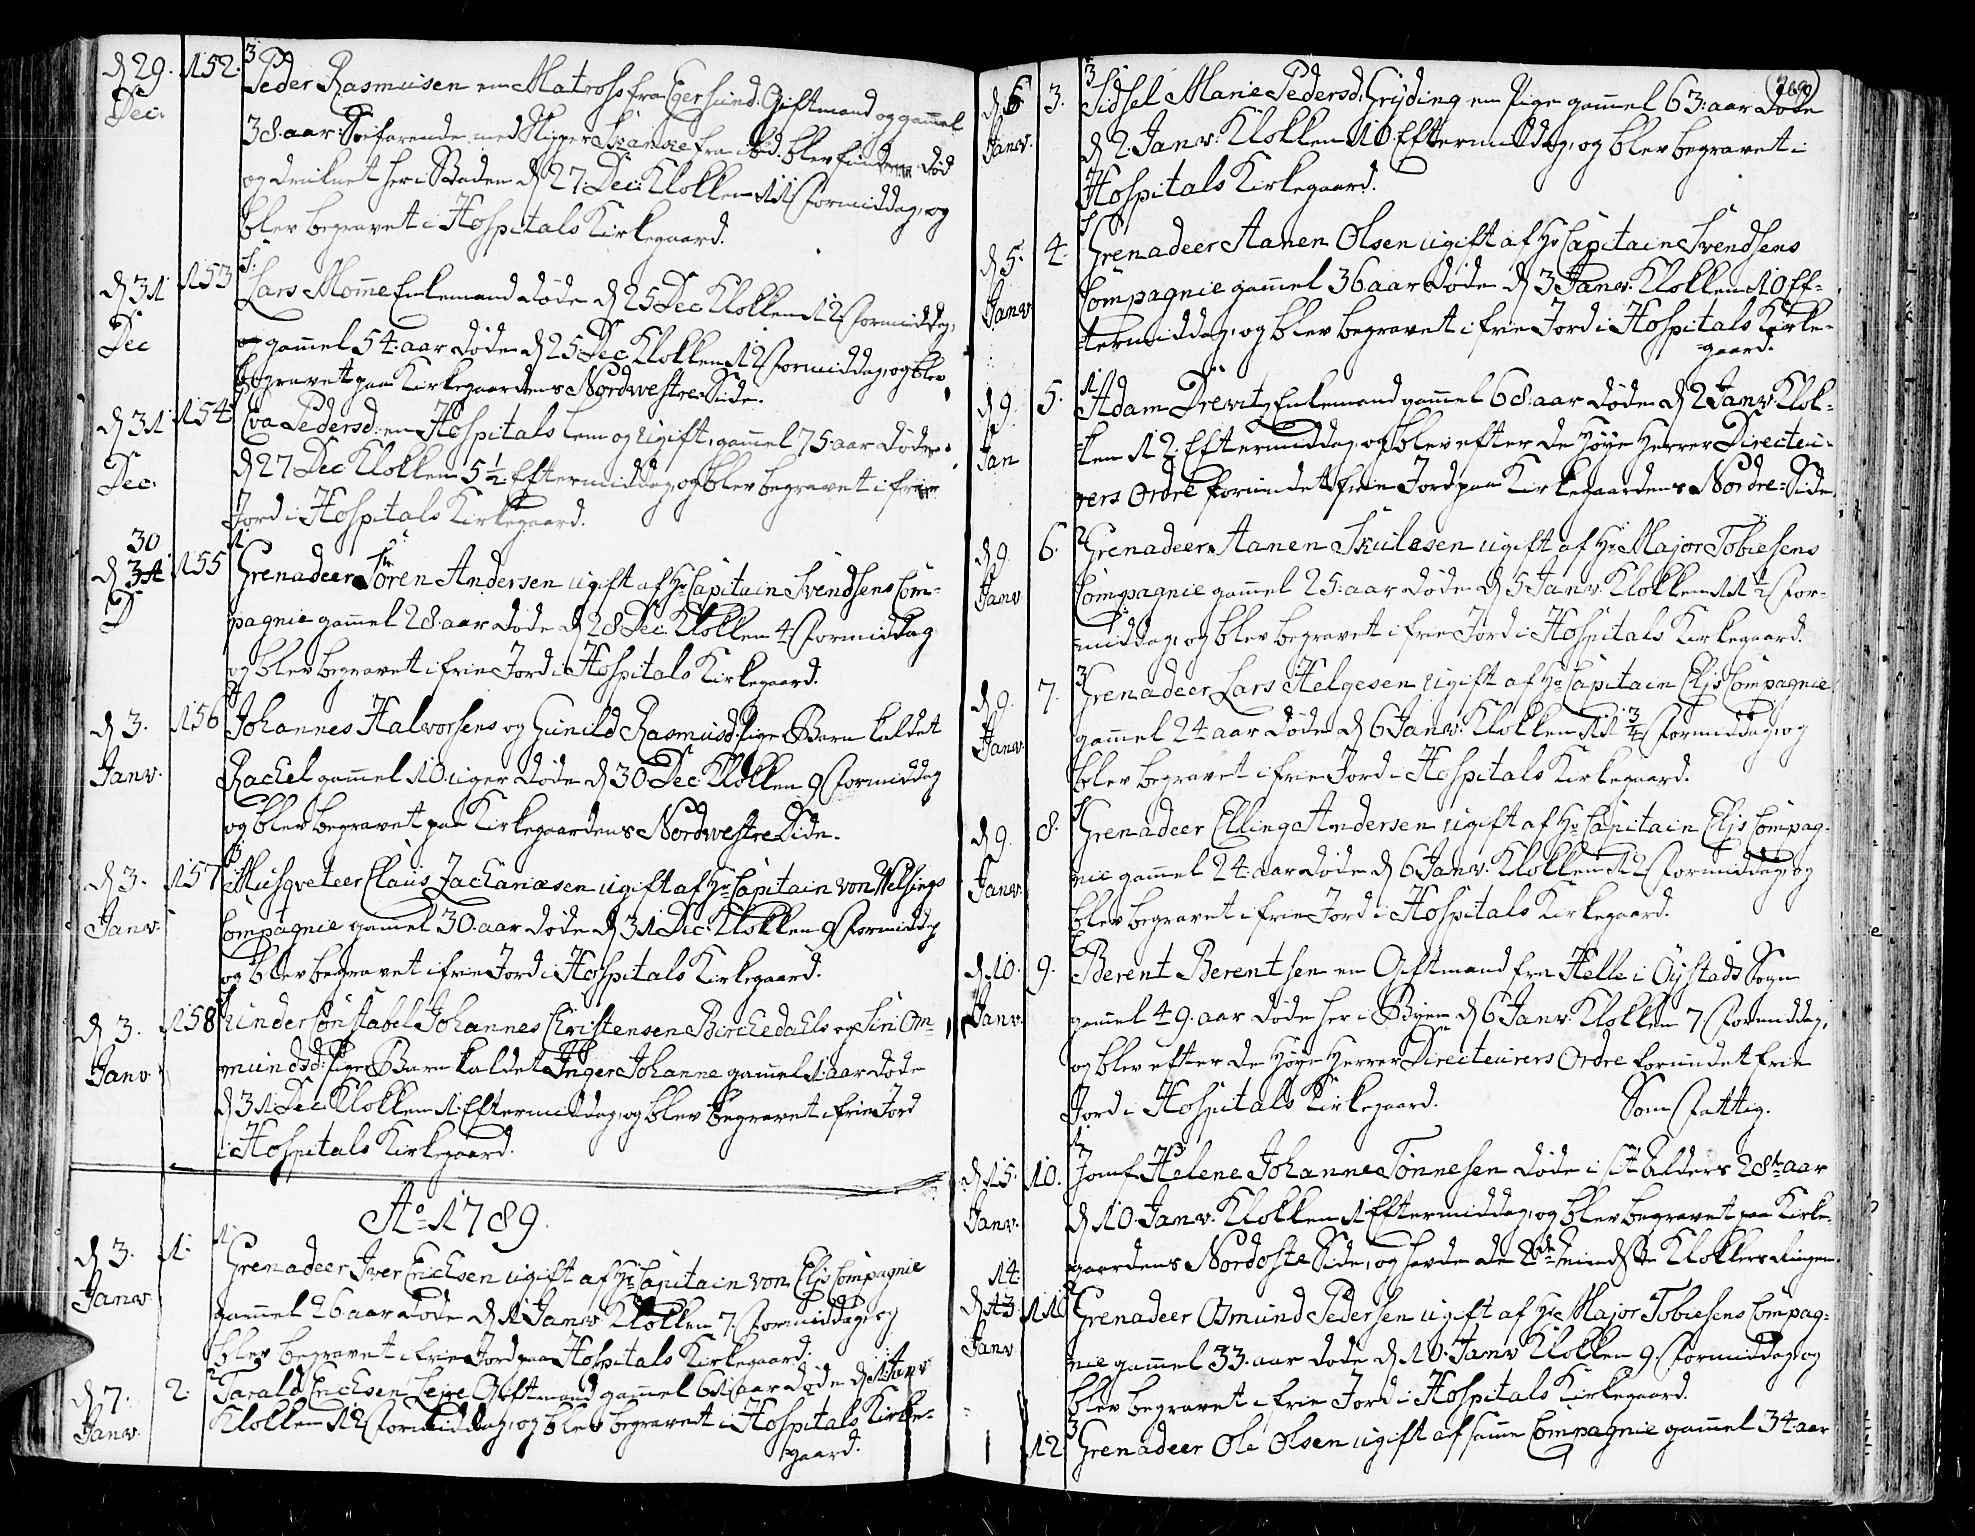 d 29. Dec: 152. 3 Peder Rasmusen en Matross fra Egersund. Giftmand og gammel
38. aar: Søefarende med Skipper fra ibd. blev funden død
og druknet her i Staden d 27 Dec: Klokken 11 Formiddag, og
blev begravet i Hospitals Kirkegaard.
d 31 Dec 153 Lars Momme Enkemand døde d 25 Dec Klokken 12 Formiddag,
og gammel 54. aar døde d 25 Dec Klokken 12 Formiddag, og blev
begravet paa Kirkegaardens Nordwestre Side.
d 31 Dec. 154 Eva Pedersd: en Hospitals lem og ugift, gammel 75 aar døde
d 27 Dec Klokken 5 1/2 Eftermiddag, og blev begravet i frie
Jord i Hospitals Kirkegaard.
30
d 31 D 155 Grenadeer Sören Andersen ugift af Hr Capitain Svendsens Com-
pagnie gammel 28 aar døde d 28 Dec. Klokken 4 Formiddag
og blev begravet i frie Jord i Hospitals Kirkegaard.
d 3. Janv. 156 Johannes Halvorsens og Gunild Rasmusd. Pige Barn kaldet
Rachel gammel 10. uger døde d 30 Dec: Klokken 9 Formiddag
og blev begravet paa Kirkegaardens Nordwestre Side.
d 3. Janv. 157 3 Musqveteer Claus Zachariæsen ugift af Hr Capitain von
Compagnie gammel 30. aar døde d 31 Dec. Klokken 9 Formiddag
og blev begravet i frie Jord i Hospitals Kirkegaard.
d 3. Janv 158 Under Constabel Johannes Christensen Birchedahls og Siri Om-
mundsd: Pige Barn kaldet Inger Johanne gammel 1. aar døde
d 31 Dec Klokken 1. Eftermiddag, og blev begravet i frie Jord
i Hospitals Kirkegaard.
Ao 1789.
d 3. Janv 1. 1. Grenadeer Iver Erichsen ugift af Hr Capitain von Eljs Compagnie
gammel 26 aar døde d 1 Janv Klokken 7. Formiddag, og
blev begravet i frie Jord paa Hospitals Kirkegaard.
d 7. Janv. 2. 2 Tarald Erichsen Leire Giftmand gammel 61 aar døde d 1 Janv
Klokken 12 Formiddag, og blev begravet i Hospitals Kirke-
gaard.
269
d 6 Janv. 3. 3 Sidsel Marie Pedersd. Gryding en Pige gammel 63. aar døde
d 2. Janv. Klokken 10 Eftermiddag, og blev begravet i
Hospitals Kirkegaard.
d 5. Janv 4. Grenadeer Aanen Olsen ugift af Hr Capitain Svendsens
Compagnie gammel 36 aar døde d 3 Janv. Klokken 10 Ef-
termiddag, og blev begravet i frie Jord i Hospitals Kirke-
gaard.
d 9. Jan 5. 1 Adam Drevitz Enkemand gammel 68. aar døde d 2 Janv Klok-
ken 12. Eftermiddag, og blev efter de Høye Herrer Directeu-
rers Ordre forundet frie Jord paa Kirkegaardens Nordre Side.
d 9. Janv 6. 2 Grenadeer Aanen Skulesen ugift af Hr Major Tobiesens
Compagnie gammel 25. aar døde d 5 Janv. Klokken 11 1/2 For-
middag, og blev begravet i frie Jord i Hospitals Kirkegaard.
d 9. Janv. 7. 3 Grenadeer Lars Helgesen ugift af Hr Capitain Eljs Compagnie
gammel 24 aar døde d 6 Janv. Klokken 11 3/4 Formiddag, og
blev begravet i frie Jord i Hospitals Kirkegaard.
d 9. Janv. 8. Grenadeer Elling Andersen ugift af Hr Capitain Eljs Compag-
nie gammel 24. aar døde d 6 Janv. Klokken 12 Formiddag, og
blev begravet i frie Jord i Hospitals Kirkegaard.
d 10. Janv. 9. Berent Berentsen en Giftmand fra Helle i Öystads Sogn
gammel 49. aar døde her i Byen d 6 Janv. Klokken 7 Formiddag,
og blev efter de Høye Herrer Directeurers Ordre forundet frie
Jord i Hospitals Kirkegaard. Som Fattig.
d 15. Janv. 10. Jomf. Helene Johanne Tönnesen døde i sit Alders 28de aar
d 10. Janv. Klokken 1 Eftermiddag, og blev begravet paa Kirke-
gaardens Nordoste Side, og havde de 2de mindste Klokkers Ringen.
14.
d 13 Janv. 11 2 Grenadeer Osmund Pedersen ugift af Hr Major Tobiesens Compag-
nie gammel 33. aar døde d 10. Janv Klokken 9. Formiddag, og
blev begravet i frie Jord i Hospitals Kirkegaard.
12 3 Grenadeer Ole Olsen ugift af samme Compagnie gammel 34. aar